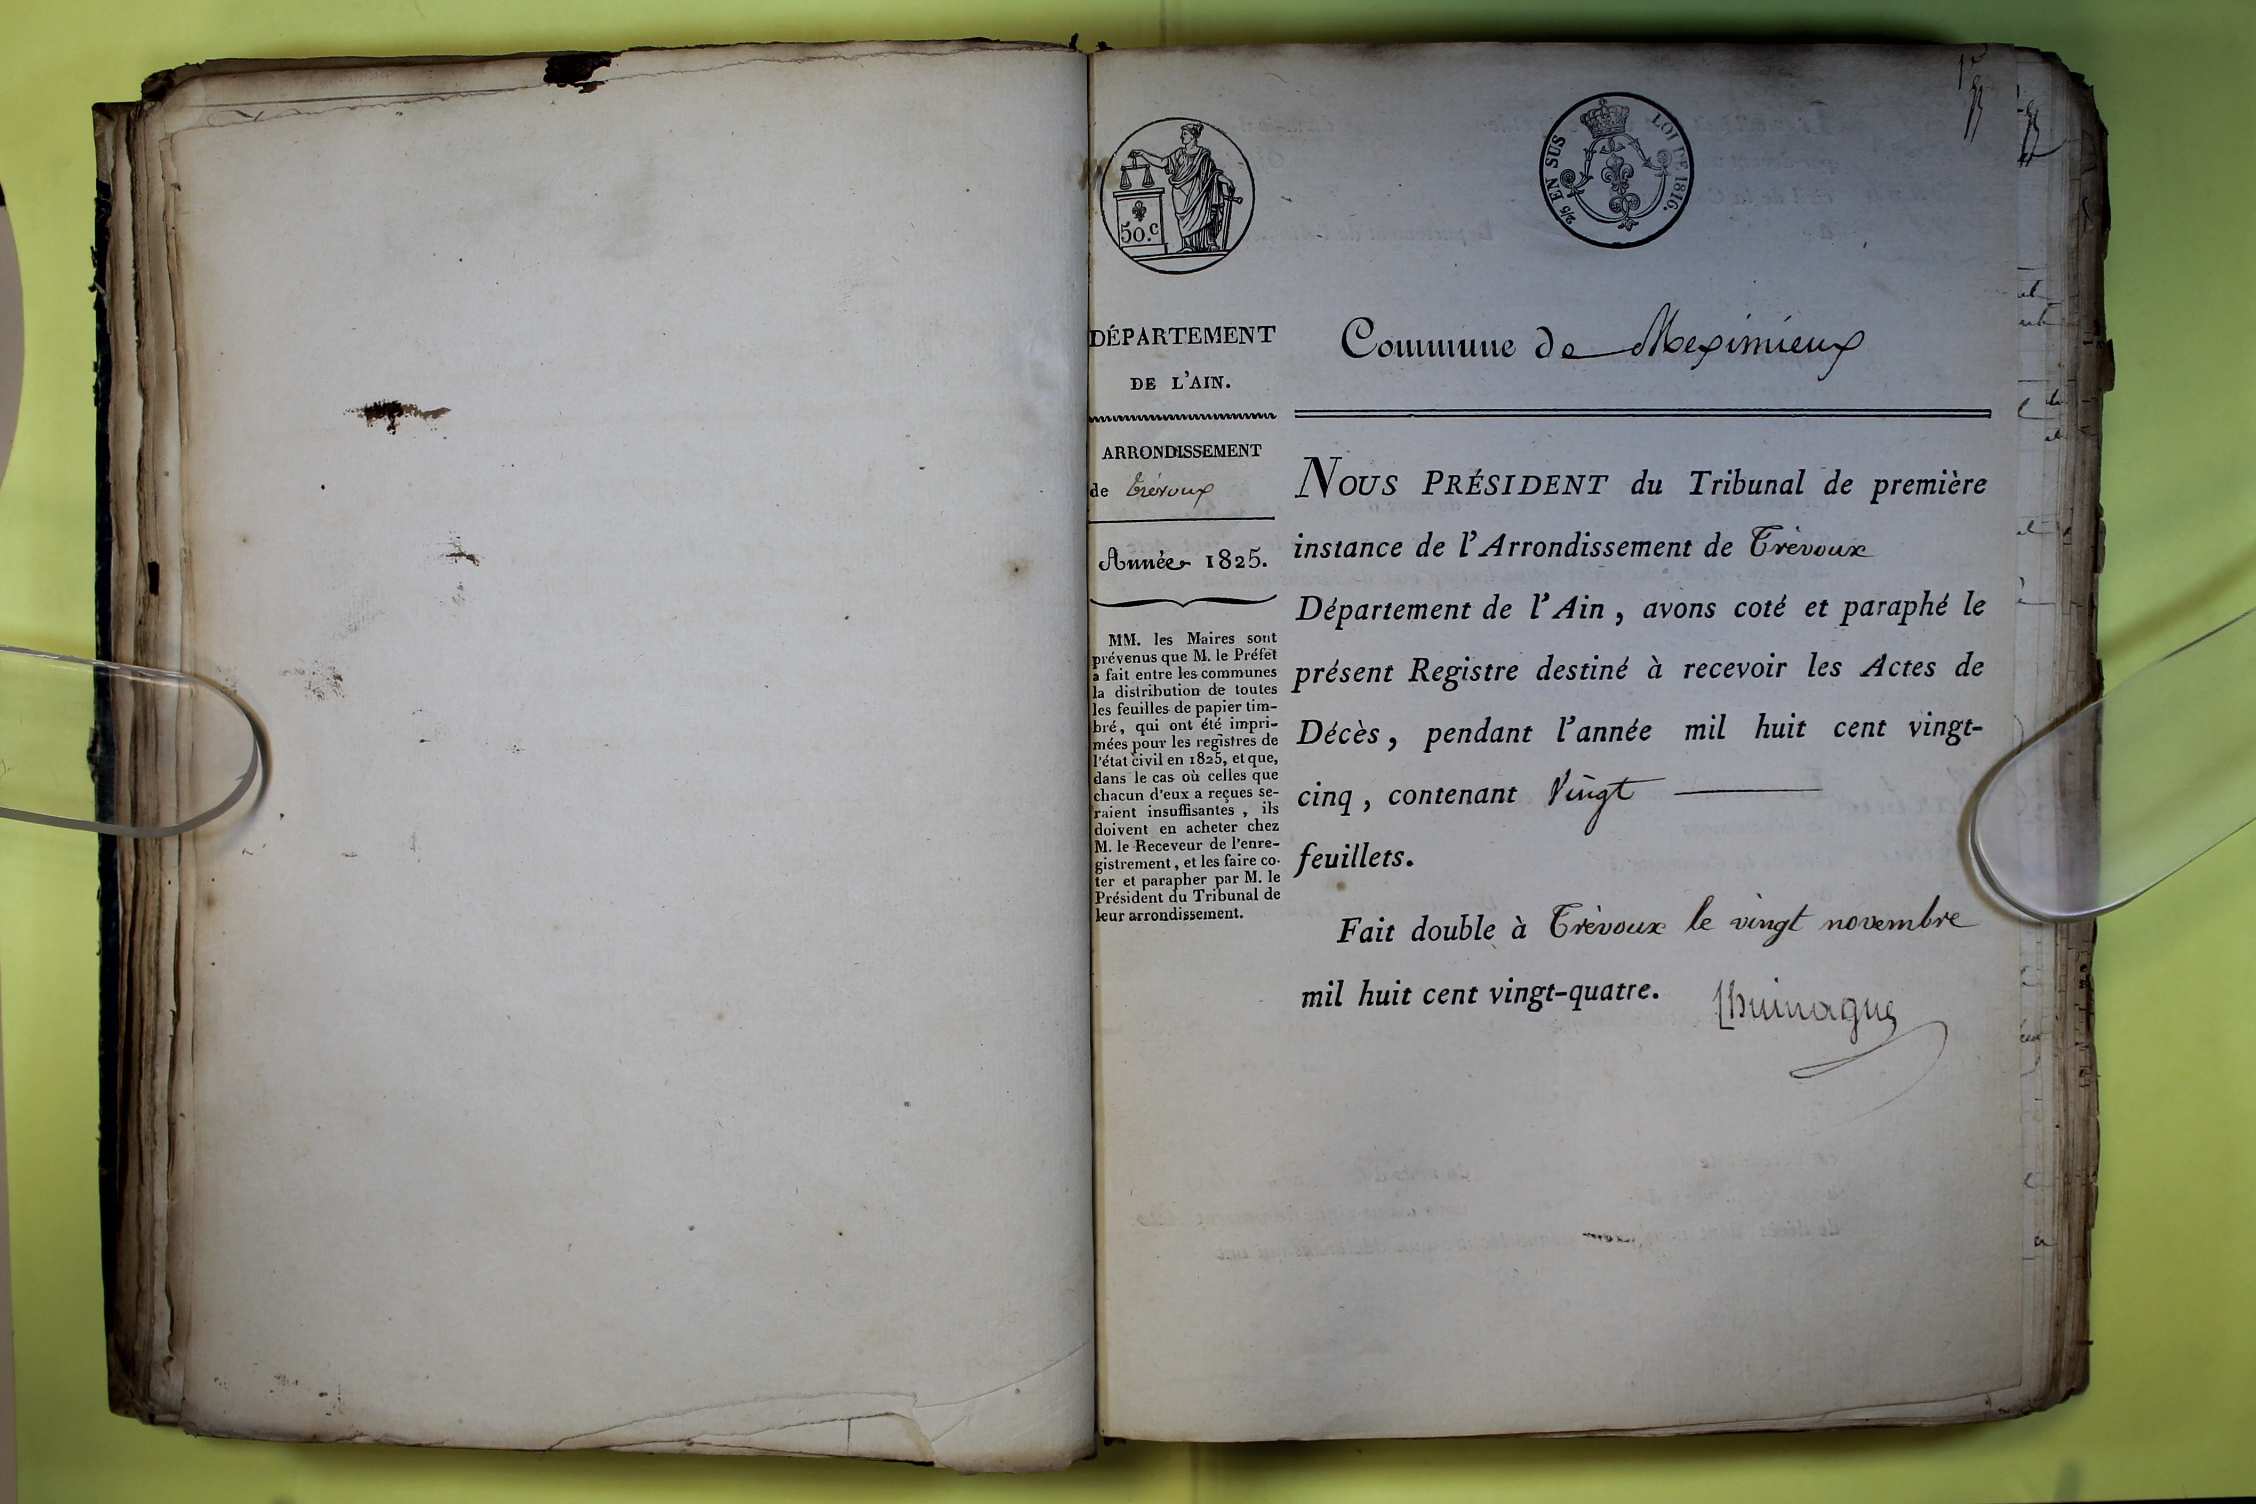 50.c
2/5 EN SUS
LOI DE 1816.
DÉPARTEMENT
DE L'AIN.
ARRONDISSEMENT
de Trévoux
Année 1825.
MM. les Maires sont
prévenus que M. le Préfet
a fait entre les communes
la distribution de toutes
les feuilles de papier tim-
bré, qui ont été impri-
mées pour les registres de
l'état civil en 1825, et que,
dans le cas où celles que
chacun d'eux a reçues se-
raient insuffisantes, ils
doivent en acheter chez
M. le Receveur de l'enre-
gistrement, et les faire co-
ter et parapher par M. le
Président du Tribunal de
leur arrondissement.
Commune de Meximieux
NOUS PRÉSIDENT du Tribunal de première
instance de l'Arrondissement de Trévoux
Département de l'Ain, avons coté et paraphé le
présent Registre destiné à recevoir les Actes de
Décès, pendant l'année mil huit cent vingt-
cinq, contenant Vingt
feuillets.
Fait double à Trévoux le vingt novembre
mil huit cent vingt-quatre.